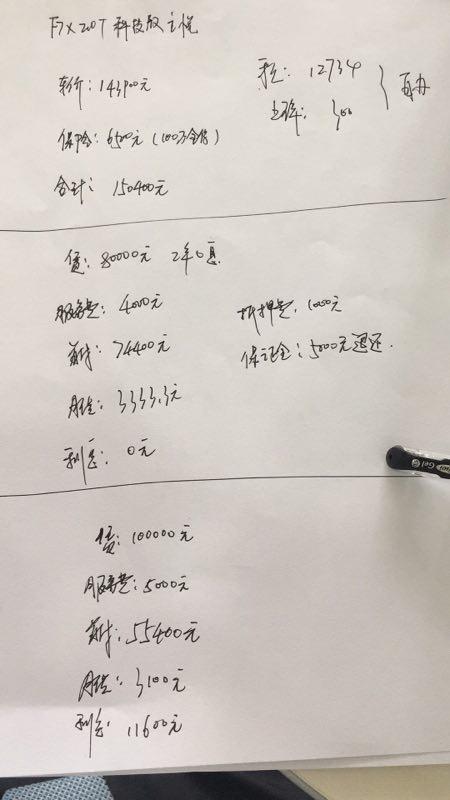 F7x 2.0T 科技版 主悦
车价：143900元
税：12734
上牌：300
自办
保险：6500元（100万全保）
合计：150400元
贷：80000元 2年0息
服务费：4000元
抵押费：1000元
首付：74400元
保证金：5000元退还.
月供：3333.3元
利息：0元
贷：100000元
服务费：5000元
首付：55400元
月供：3100元
利息：11600元
Gel